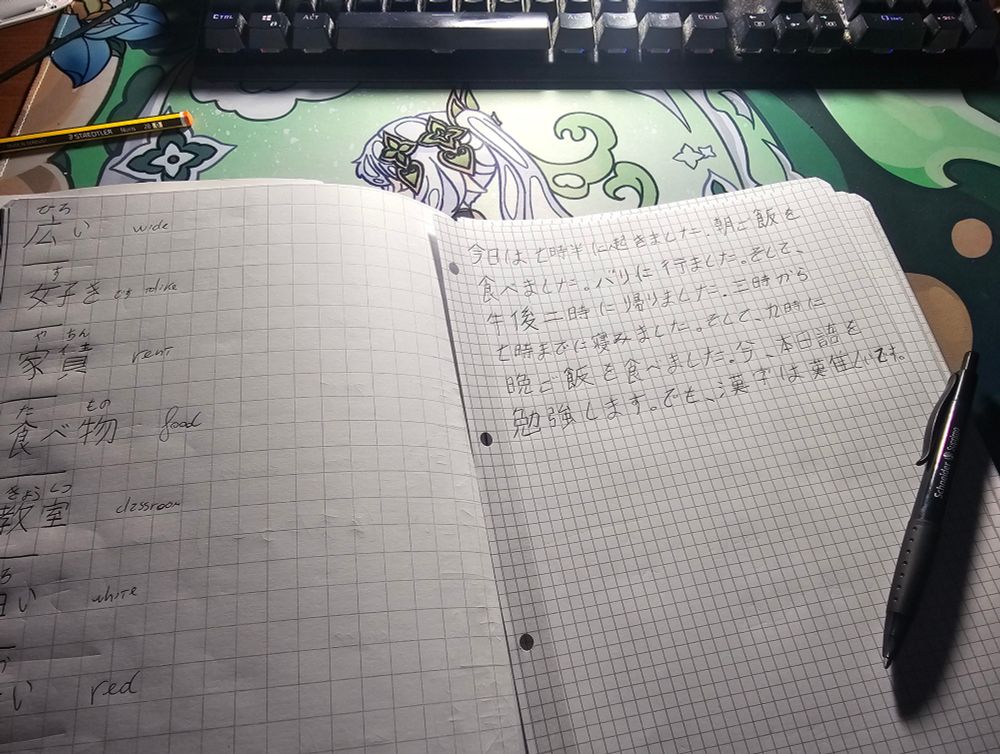 CTRL ALT CTRL
STAEDTLER Noris
ひろ
広い wide
す
好き
や ちん
家賃 rent
た もの
食べ物 food
きょうしつ
教室 classroom
ろ
白い white
い red
今日は七時半に起きました。朝ご飯を
食べました。バリに行ました。そして、
午後二時に帰りました。三時から
七時までに寝みました。そして、九時に
晩ご飯を食べました。今、本日語を
勉強します。でも、漢字は難しいです。
Schneider